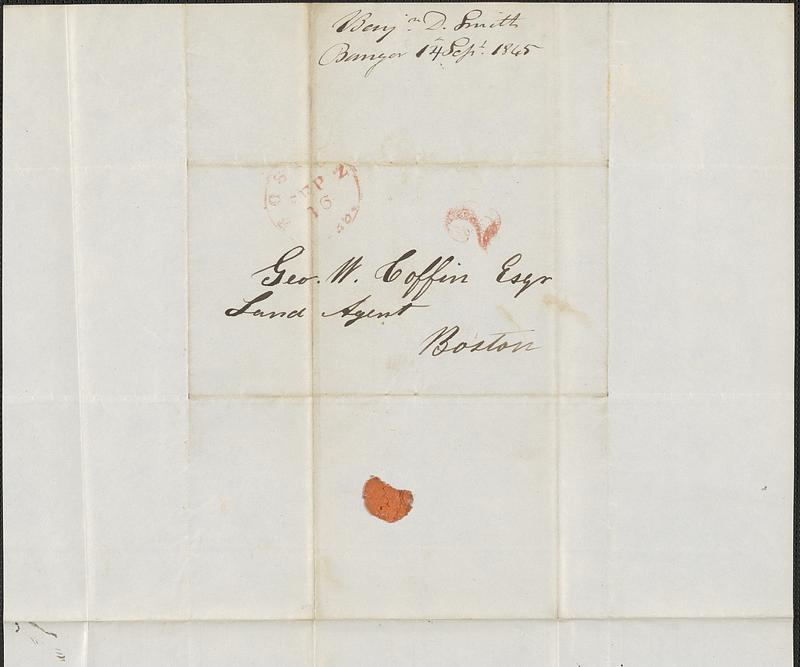 Benjn. D. Smith
Bangor 14 Sept. 1845
BOS
SEP
16
2
Geo. W. Coffin Esqr
Land Agent
Boston